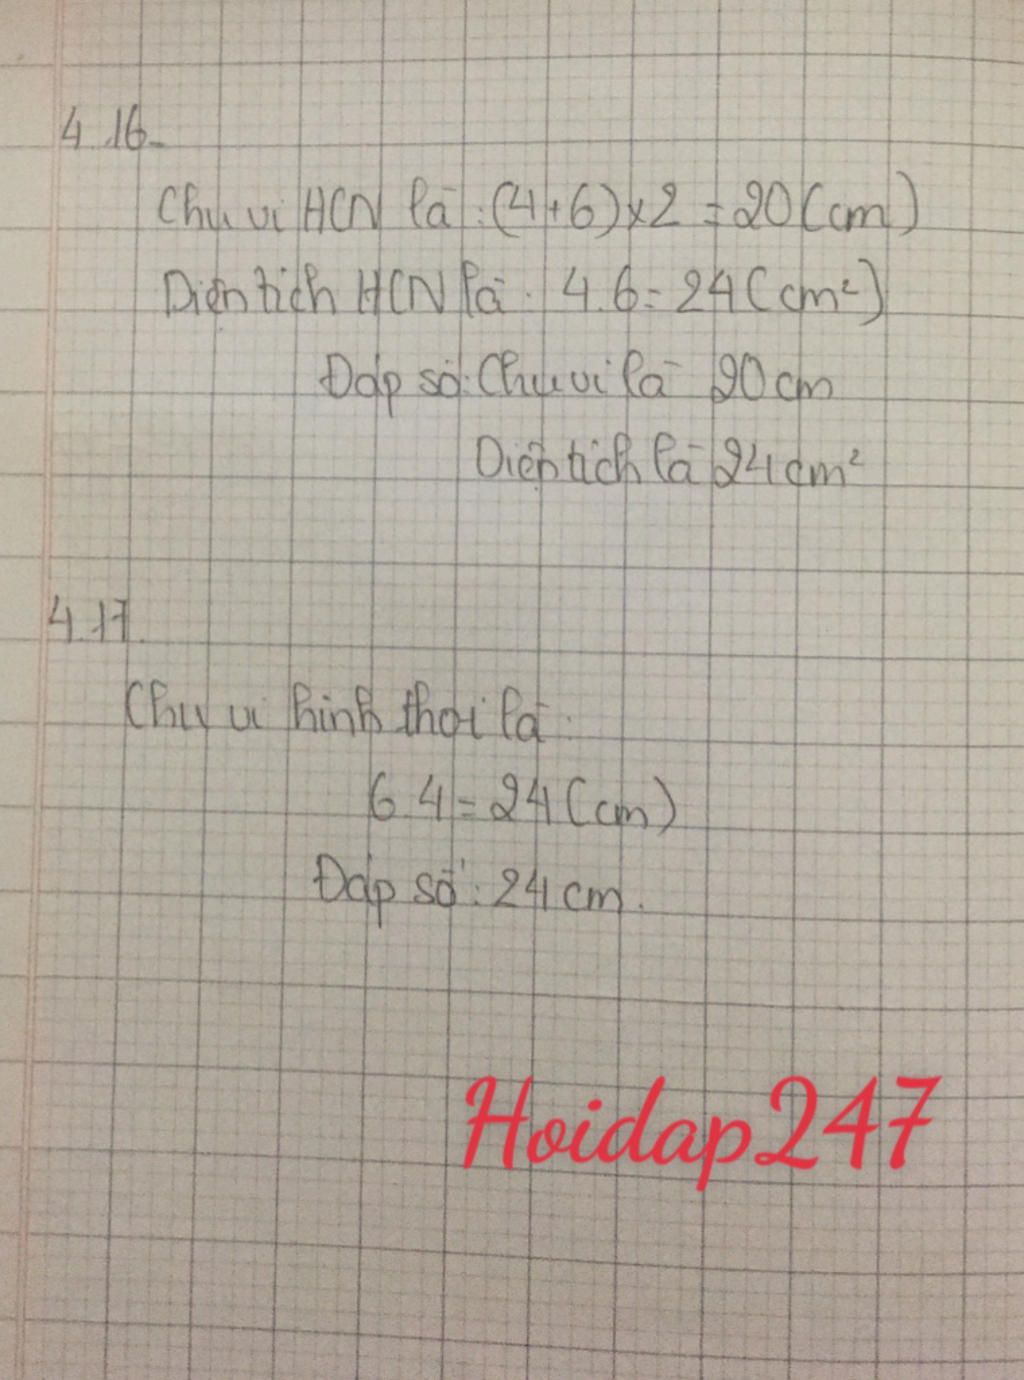 4.16.
Chu vi HCN là: (4+6)x2 = 20(cm)
Diện tích HCN là: 4.6= 24(cm²)
Đáp số: Chu vi là 20cm
Diện tích là 24cm²
4.17.
Chu vi hình thoi là:
6.4=24(cm)
Đáp số: 24cm.
Hoidap247